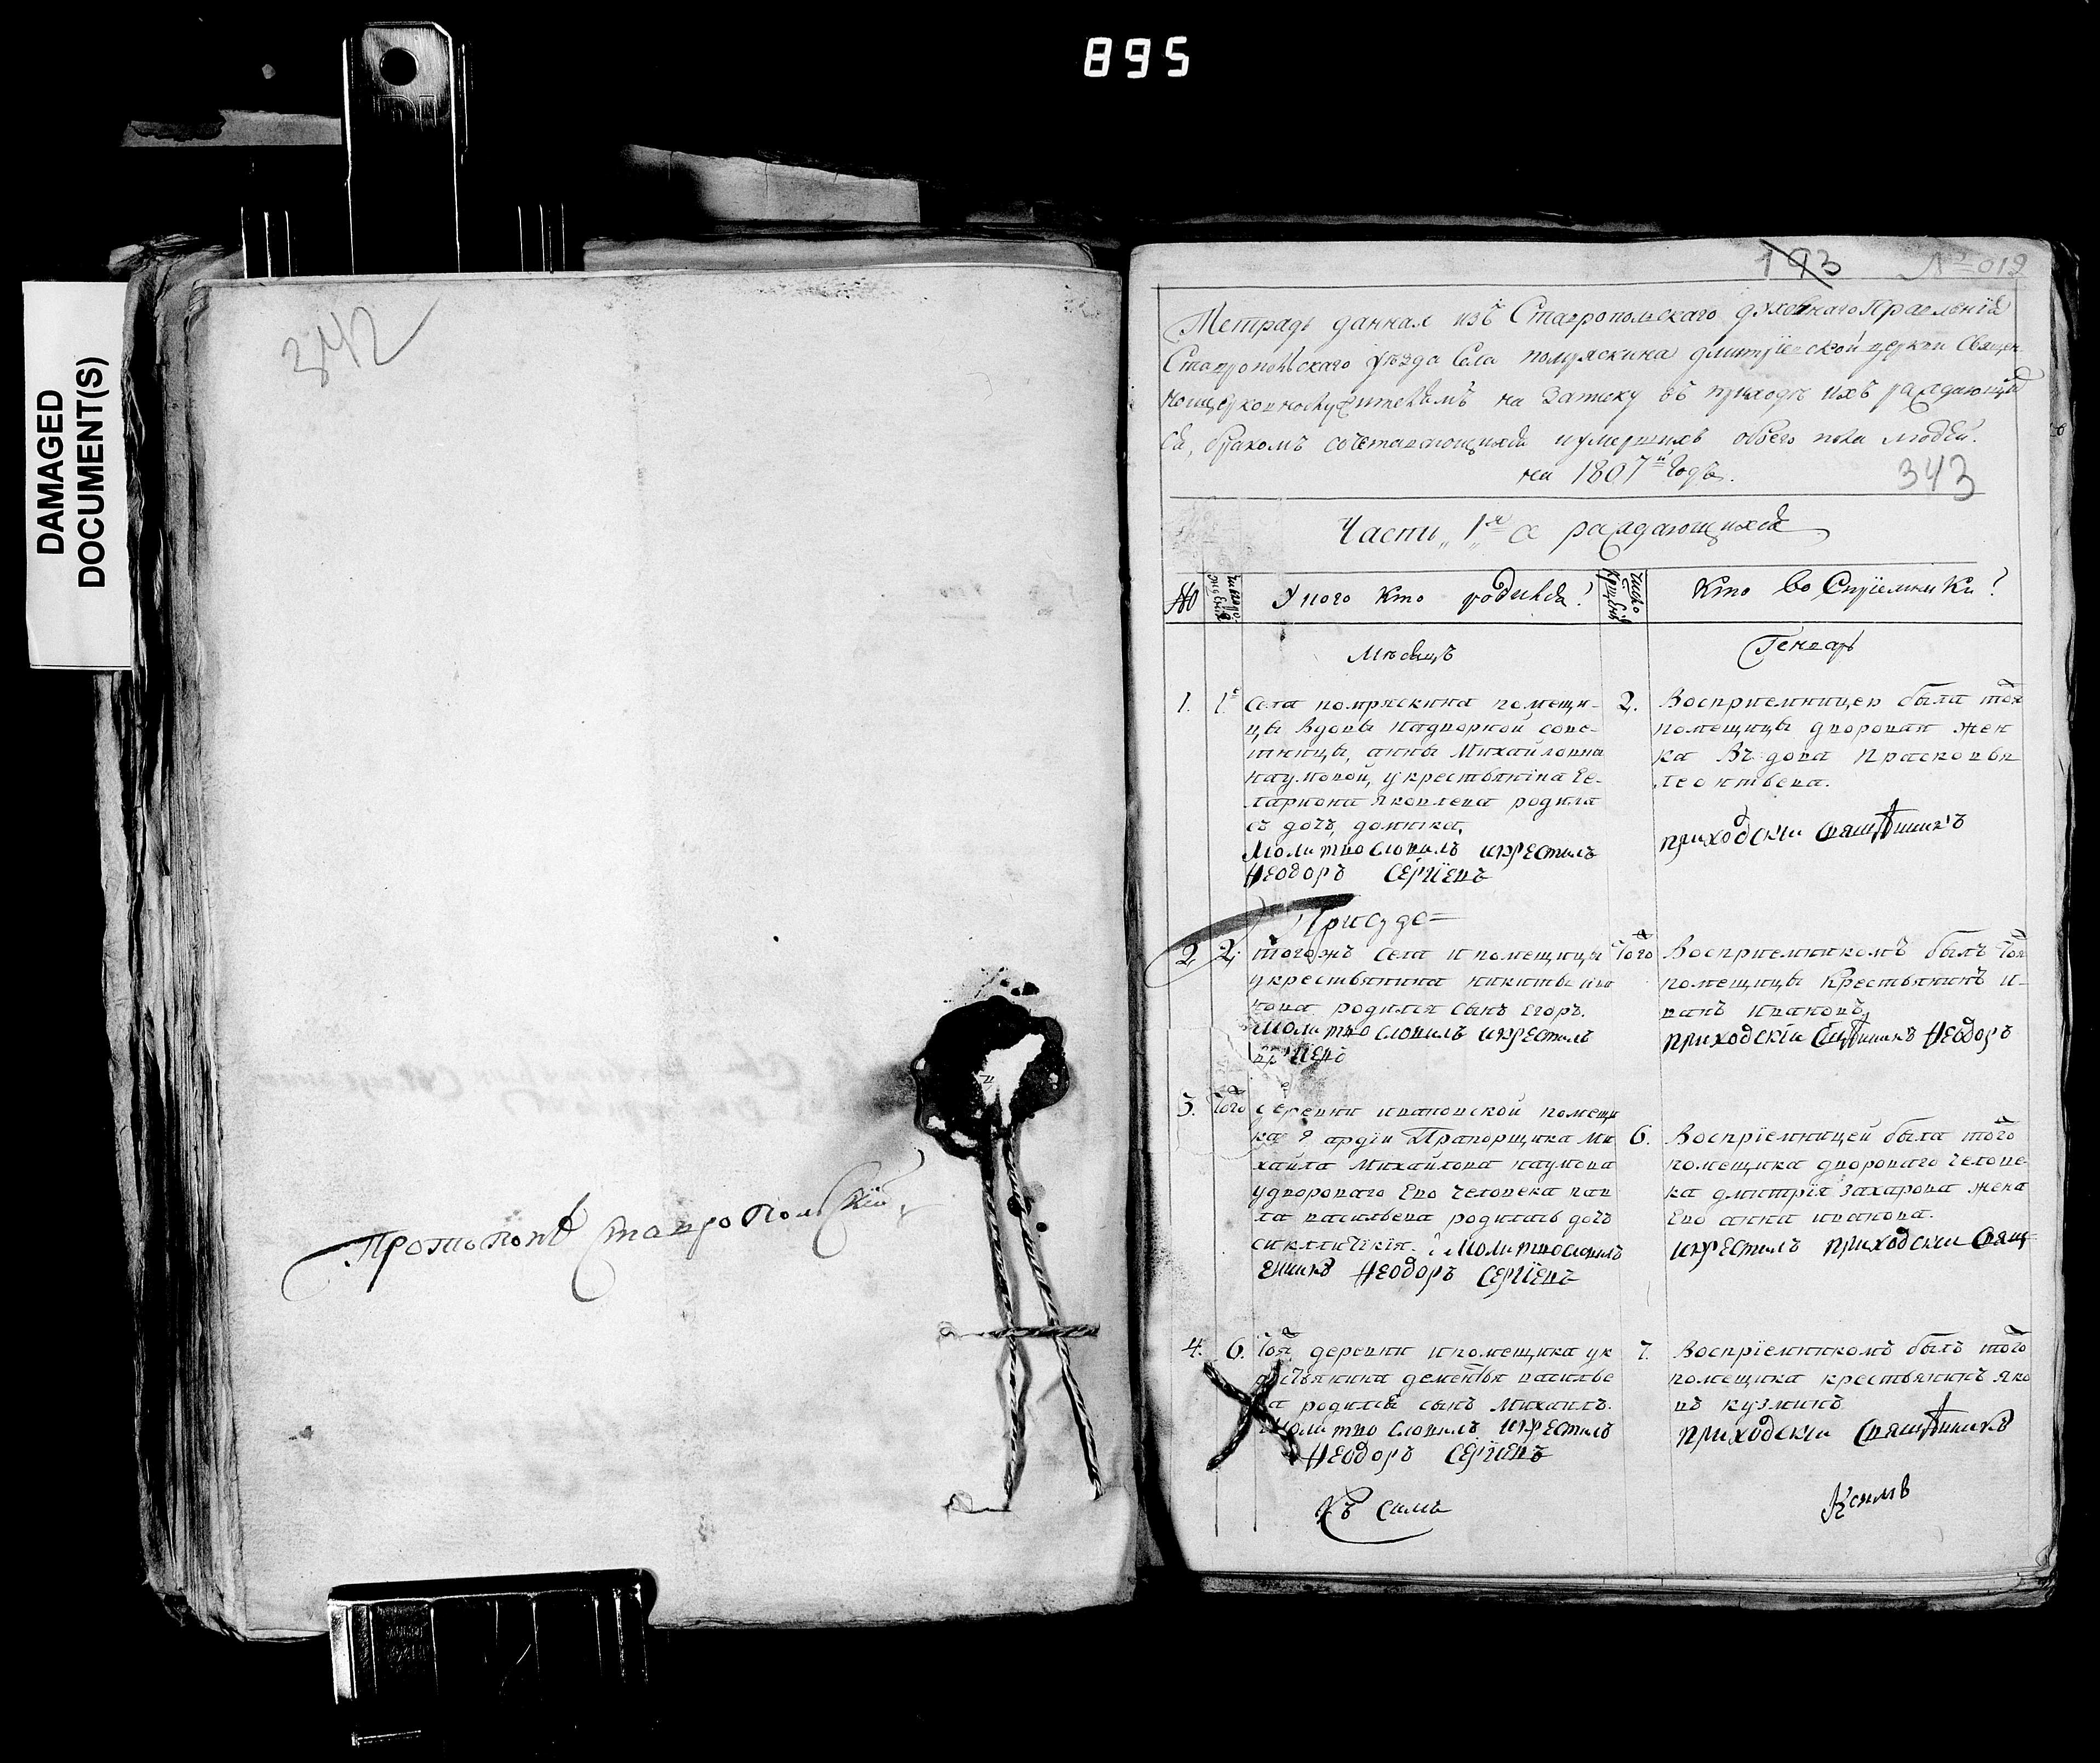 895
DAMAGED
DOCUMENT(S)
342
Протопопъ Ставропольскїй
193 № 019
Тетрадь данная изъ Ставропольскаго духовнаго Правленїя
Ставропольскаго уѣзда Села помряскина дмитрїевской церкви Священ
ноцерковнослужителямъ на записку въ приходѣ ихъ раждающих
ся, бракомъ сочетавающихся и умершихъ обоего пола людей.
на 1807й Годъ.
343
Части 1я о раждающихся
№
У кого кто родился?
Число крещенїя
Кто воспрїемники?
Мѣсяцъ
Генварь
1. 1е Села помряскина помещи-
цы вдовы надворной сове-
тницы, анны Михайловны
наумовой, у крестьянина Ге-
лариона Яковлева родила
съ дочь домника,
Молитвословилъ и крестилъ
Ѳеодоръ Сергїевъ
2. Восприемницею была тоя
помещицы дворовая жен
ка въдова Прасковья
леонтьева.
приходскїи священникъ
2 2. тогожъ села и помещицы
у крестьянина никиты ива
нова родился сынъ Егоръ.
Молитвословилъ и крестилъ
Того Восприемникомъ былъ тоя
помещицы Крестьянинъ и-
ванъ ивановъ,
приходскїи священникъ Ѳеодоръ
3. Того деревни ивановской помещи
ка гвардїи Прапорщика Ми
хаила Михайлова наумова
у двороваго Ево человека пав
ла васильева родилась дочь
синклитикїя. Молитвословилъ
енникъ Ѳеодоръ Сергїевъ
6. Воспрїемницей была того
помещика двороваго челове-
ка дмитрїя Захарова жена
Ево анна иванова.
и крестилъ приходскїи свящ
4. 6. Тоя деревни и помещика у к
рестьянина дементья василье
ва родился сынъ Михаилъ.
Молитвословилъ и крестилъ
Ѳеодоръ Сергїевъ
7. Воспрїемникомъ былъ того
помещика крестьянинъ яко
въ кузминъ
приходскїи священникъ
Къ симъ
Ксимъ